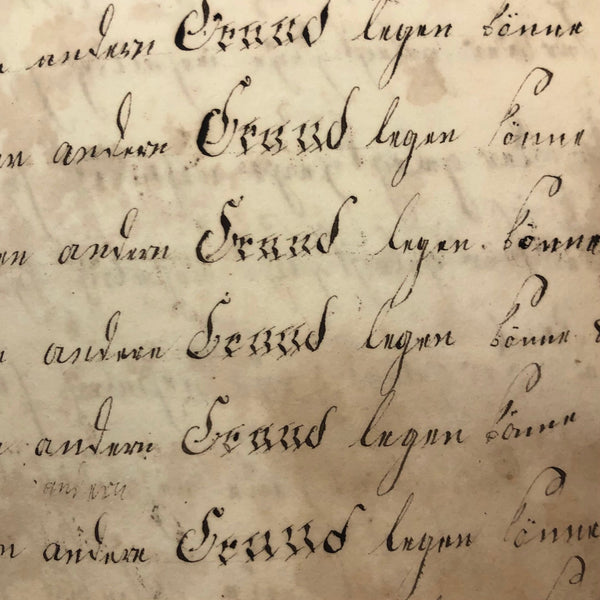 n andern Grund legen könne
en andern Grund legen könne
en andern Grund legen könne
n andere Grund legen könne
n andern Grund legen könne
andern
n andere Grund legen könne